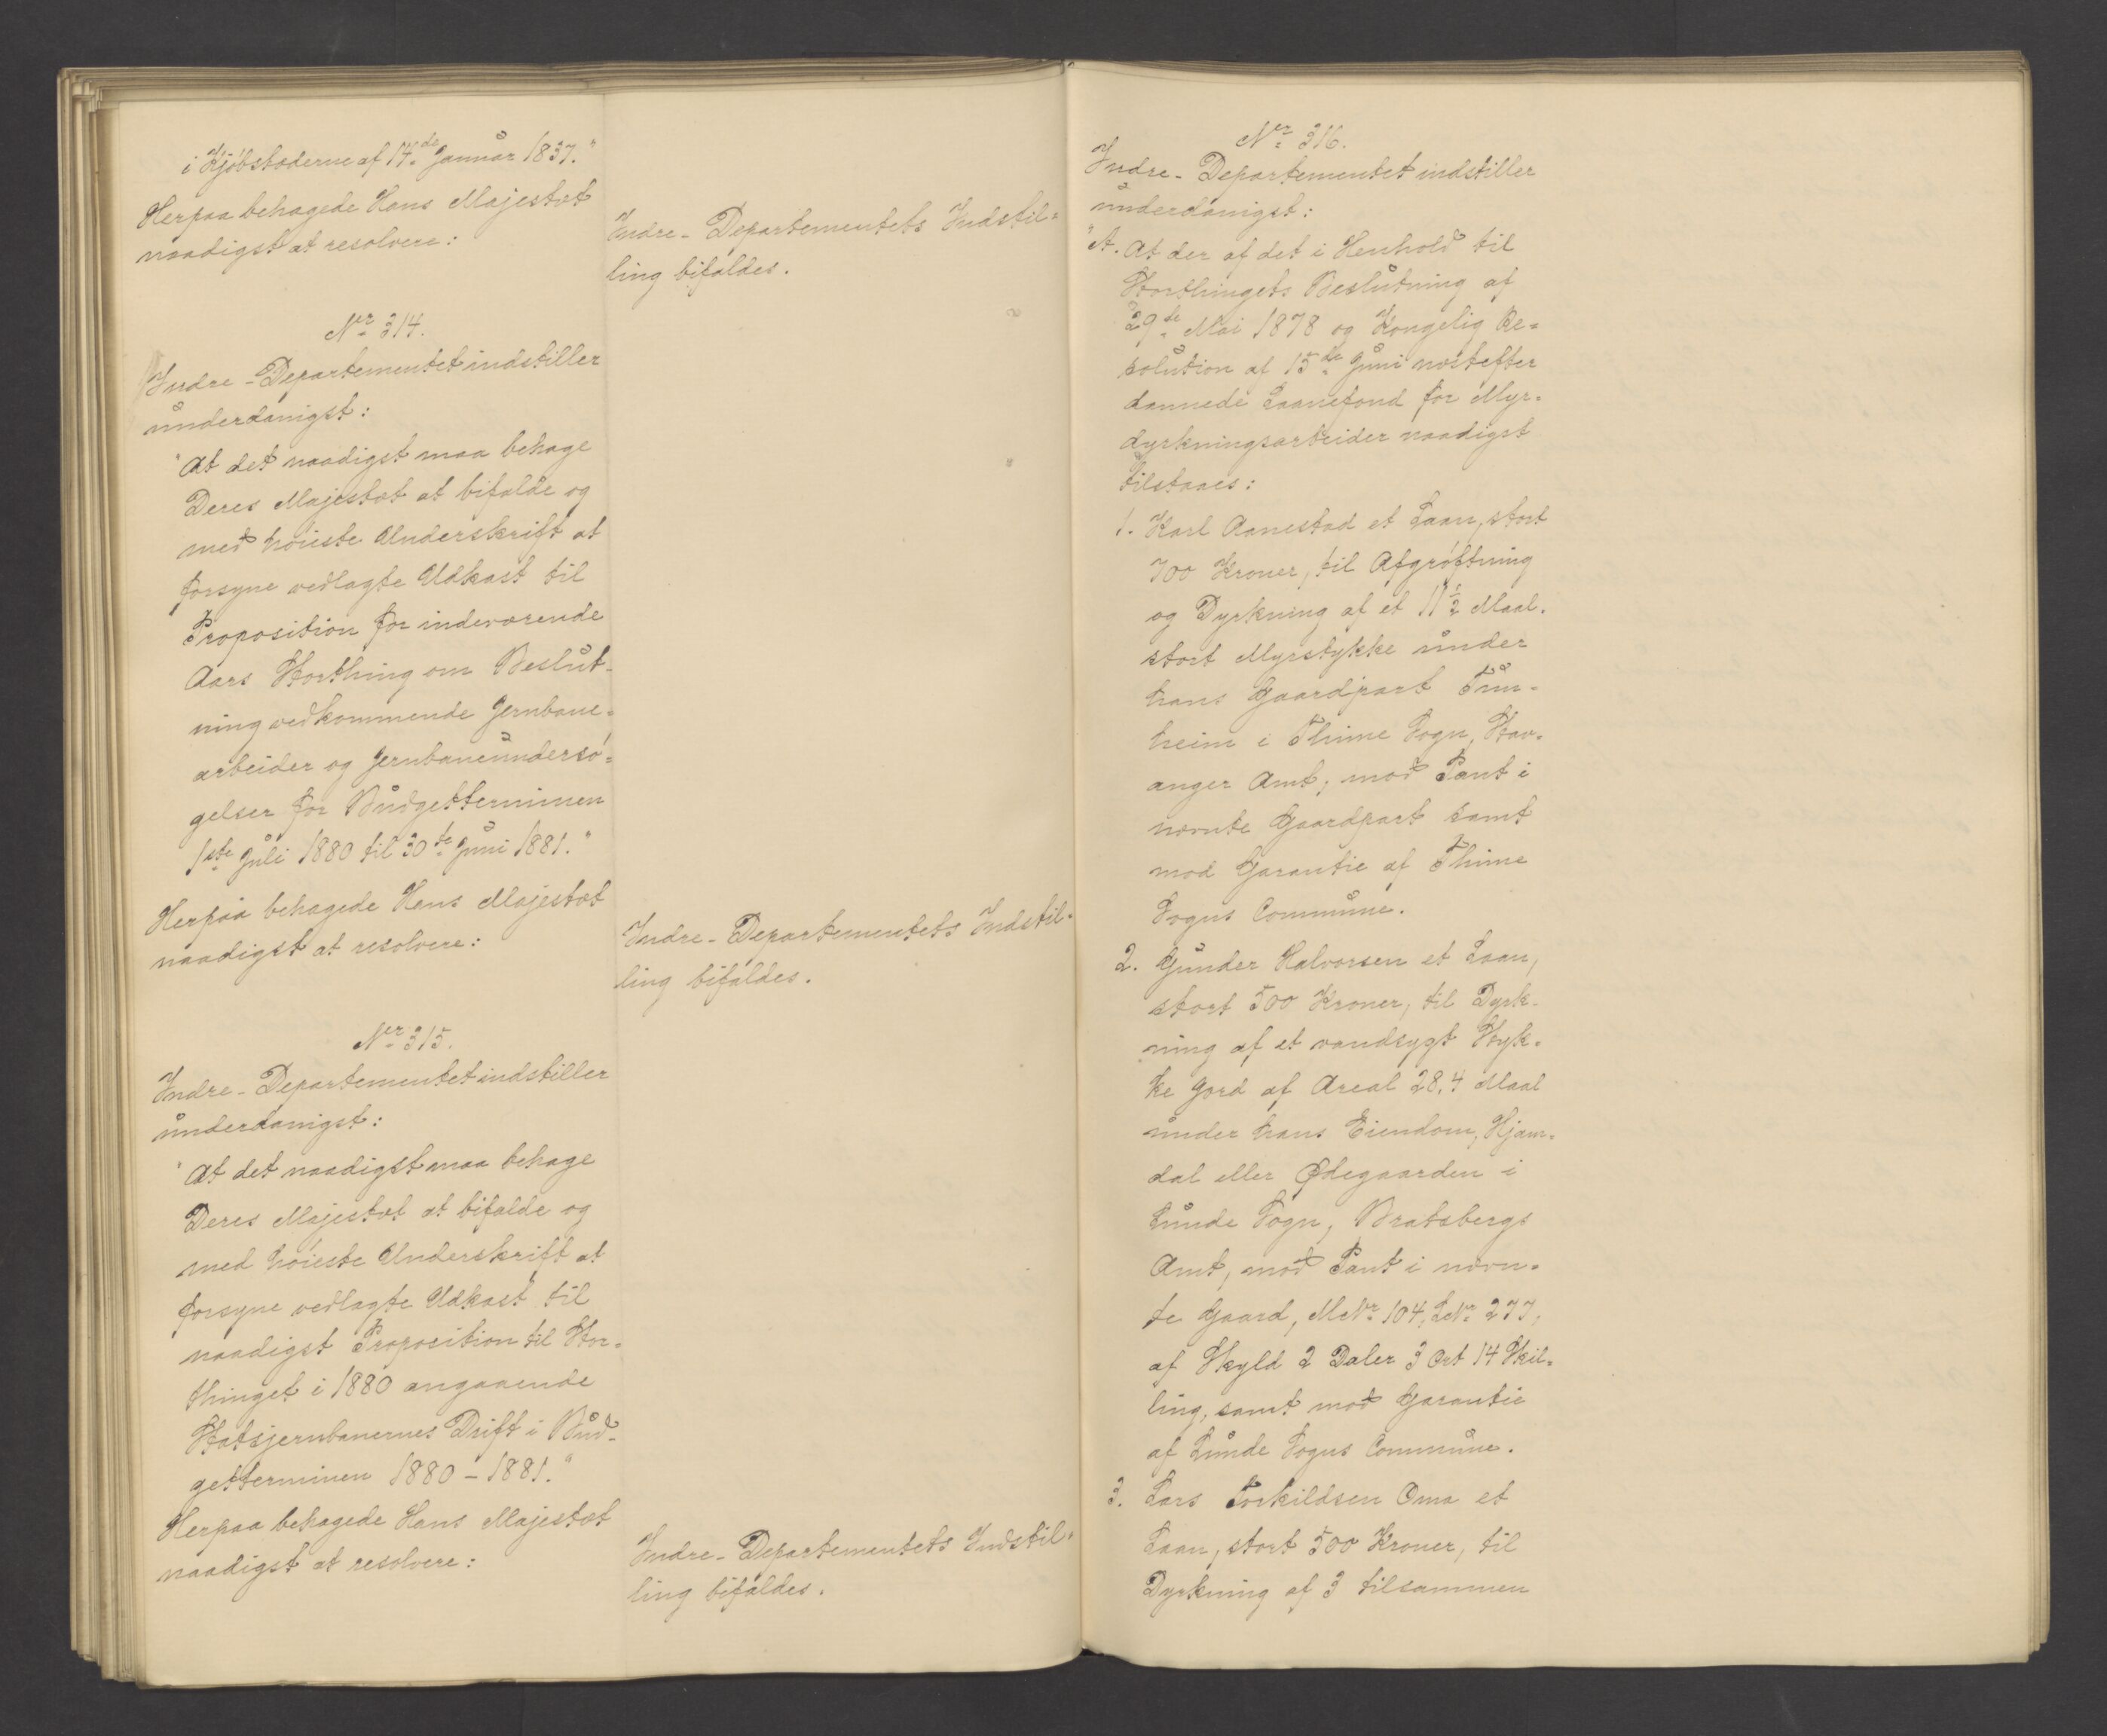 i Kjøbstæderne af 14de Januar 1837."
Herpaa behagede Hans Majestæt
naadigst at resolvere:
Indre-Departementets Indstil-
ling bifaldes.
No 314.
Indre-Departementet indstiller
underdanigst:
"At det naadigst maa behage
Deres Majestæt at bifalde og
med høieste Underskrift at
forsyne vedlagte Udkast til
Proposition for indeværende
Aars Storthing om Beslut-
ning vedkommende Jernbane-
arbeider og Jernbaneundersø-
gelser for Budgetterminen
1ste Juli 1880 til 30te Juni 1881."
Herpaa behagede Hans Majestæt
naadigst at resolvere:
Indre-Departementets Indstil-
ling bifaldes.
No 315.
Indre-Departementet indstiller
underdanigst:
"At det naadigst maa behage
Deres Majestæt at bifalde og
med høieste Underskrift at
forsyne vedlagte Udkast til
naadigst Proposition til Stor-
thinget i 1880 angaaende
Statsjernbanernes Drift i Bud-
getterminen 1880-1881."
Herpaa behagede Hans Majestæt
naadigst at resolvere:
Indre-Departementets Indstil-
ling bifaldes.
No 316.
Indre-Departementet indstiller
underdanigst:
"A. At der af det i Henhold til
Storthingets Beslutning af
29de Mai 1878 og Kongelig Re-
solution af 15de Juni næstefter
dannede Laanefond for Myr-
dyrkningsarbeider naadigst
tilstaaes:
1. Karl Aanestad et Laan, stort
700 Kroner, til Afgrøftning
og Dyrkning af et 11 1/2 Maal
stort Myrstykke under
hans Gaardpart Tun-
heim i Thime Sogn, Stav-
anger Amt, mod Pant i
nævnte Gaardpart samt
mod Garantie af Thime
Sogns Commune.
2. Gunder Halvorsen et Laan,
stort 500 Kroner, til Dyrk-
ning af et vandsygt Styk-
ke Jord af Areal 28,4 Maal
under hans Eiendom, Hjam-
dal eller Ødegaarden i
Lunde Sogn, Bratsbergs
Amt, mod Pant i nævn-
te Gaard, MNr 104, LNr 277,
af Skyld 2 Daler 3 Ort 14 Skil-
ling, samt mod Garantie
af Lunde Sogns Commune.
3. Lars Torkildsen Oma et
Laan, stort 500 Kroner, til
Dyrkning af 3 tilsammen